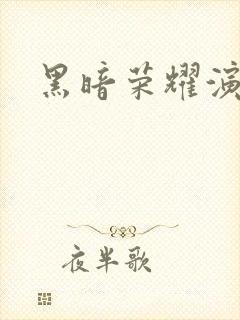 黑暗荣耀演
夜半歌